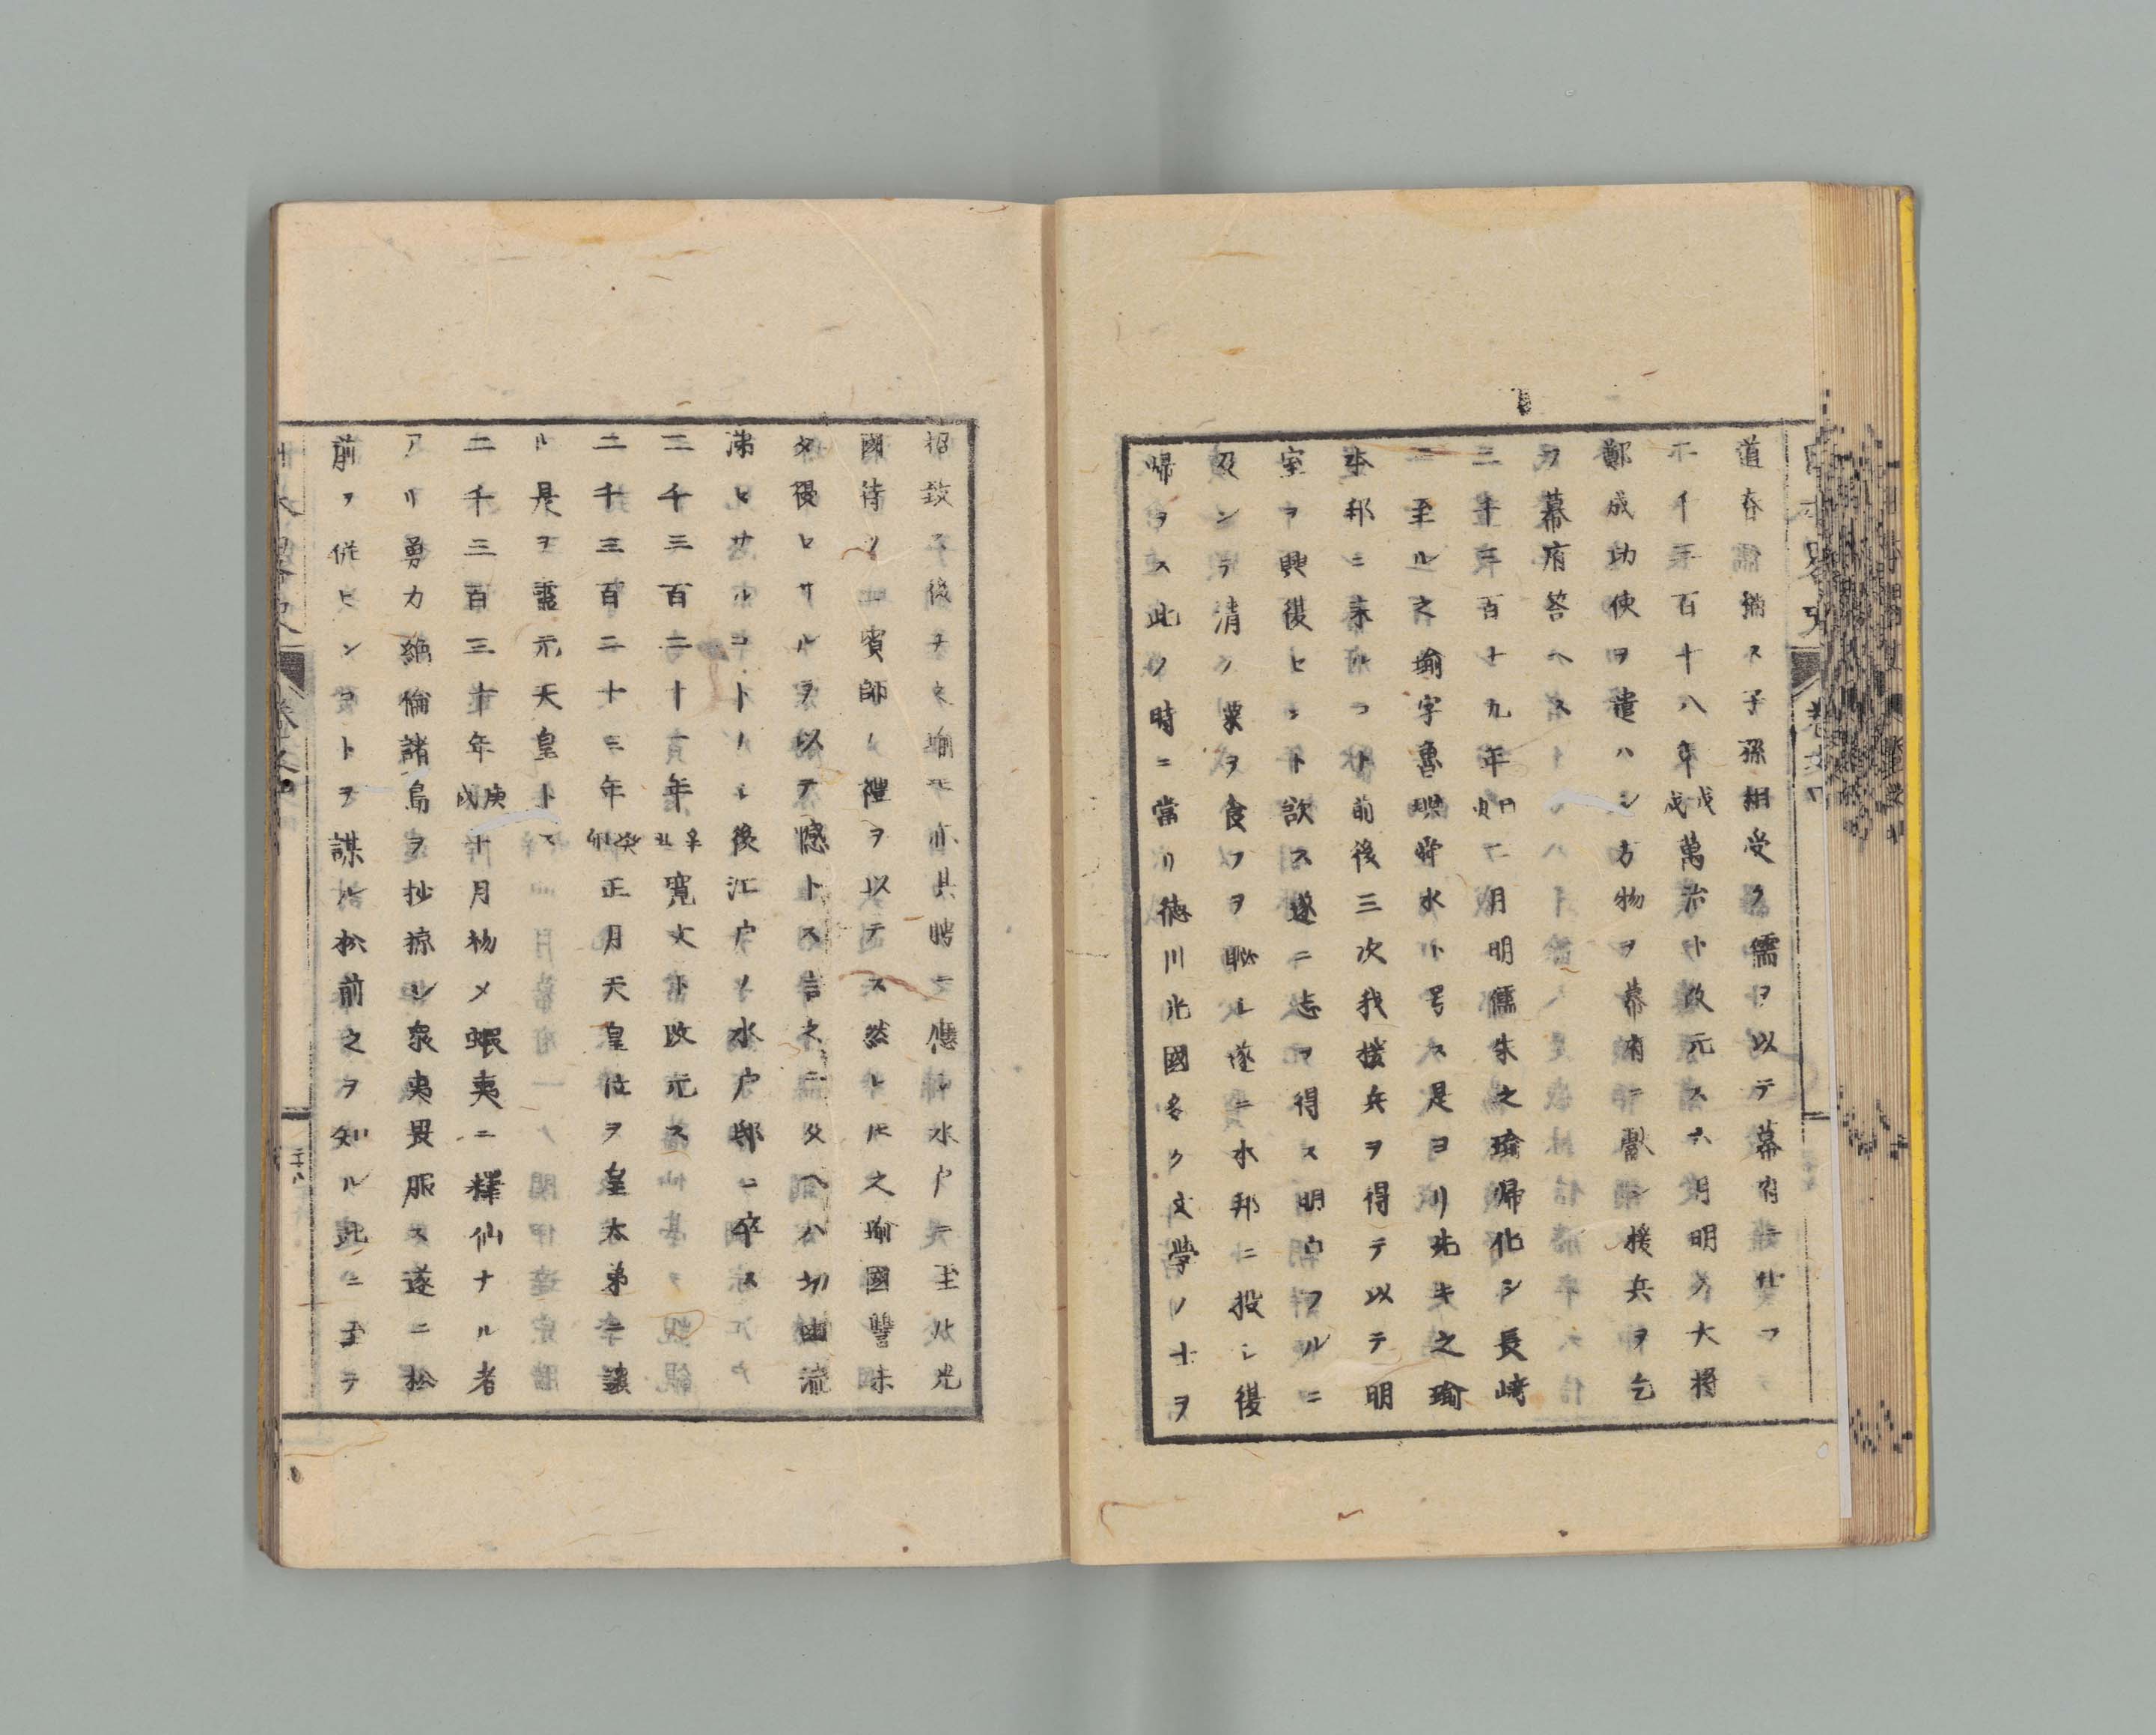 道春儒補ス子孫相受ク儒ヲ以テ幕府ニ仕フ
二千三百十八年戊戌萬治ト改元ス六月明ノ大将
鄭成功使ヲ遣ハシ方物ヲ幕府ニ獻シ援兵ヲ乞
フ幕府答ヘス
二千三百十九年二月明儒朱之瑜歸化シ長崎
ニ至ル之瑜字魯璵舜水ト号ス是ヨリ先キ之瑜
本邦ニ來ルコト前後三次我援兵ヲ得テ以テ明
室ヲ興復セント欲ス遂ニ志ヲ得ス明亡フルニ
及ンテ清ノ粟ヲ食フヲ恥シ遂ニ本邦ニ投シ復
歸ヲス此ノ時ニ當リ徳川光國多ク文學ノ士ヲ
招致ス後チ之瑜モ亦其聘ニ應シ水戸ニ至ル光
國待ツニ賓師ノ禮ヲ以テス然レ𪜈之瑜國讐未
タ復セサルヲ以テ憾トス言之ニ及ヘハ切齒流
涕セサルコトナシ後江戸ノ水戸邸ニ卒ス
二千三百二十一年辛丑寛文ト改元ス
二千三百二十三年癸卯正月天皇位ヲ皇太弟ニ讓
ル是ヲ靈元天皇トス
二千三百三十年庚戌十月初メ蝦夷ニ釋仙ナル者
アリ勇力絶倫諸島ヲ抄掠シ衆夷畏服ス遂ニ松
前ヲ併センコトヲ謀ル松前之ヲ知ル此ニ至テ
二十八